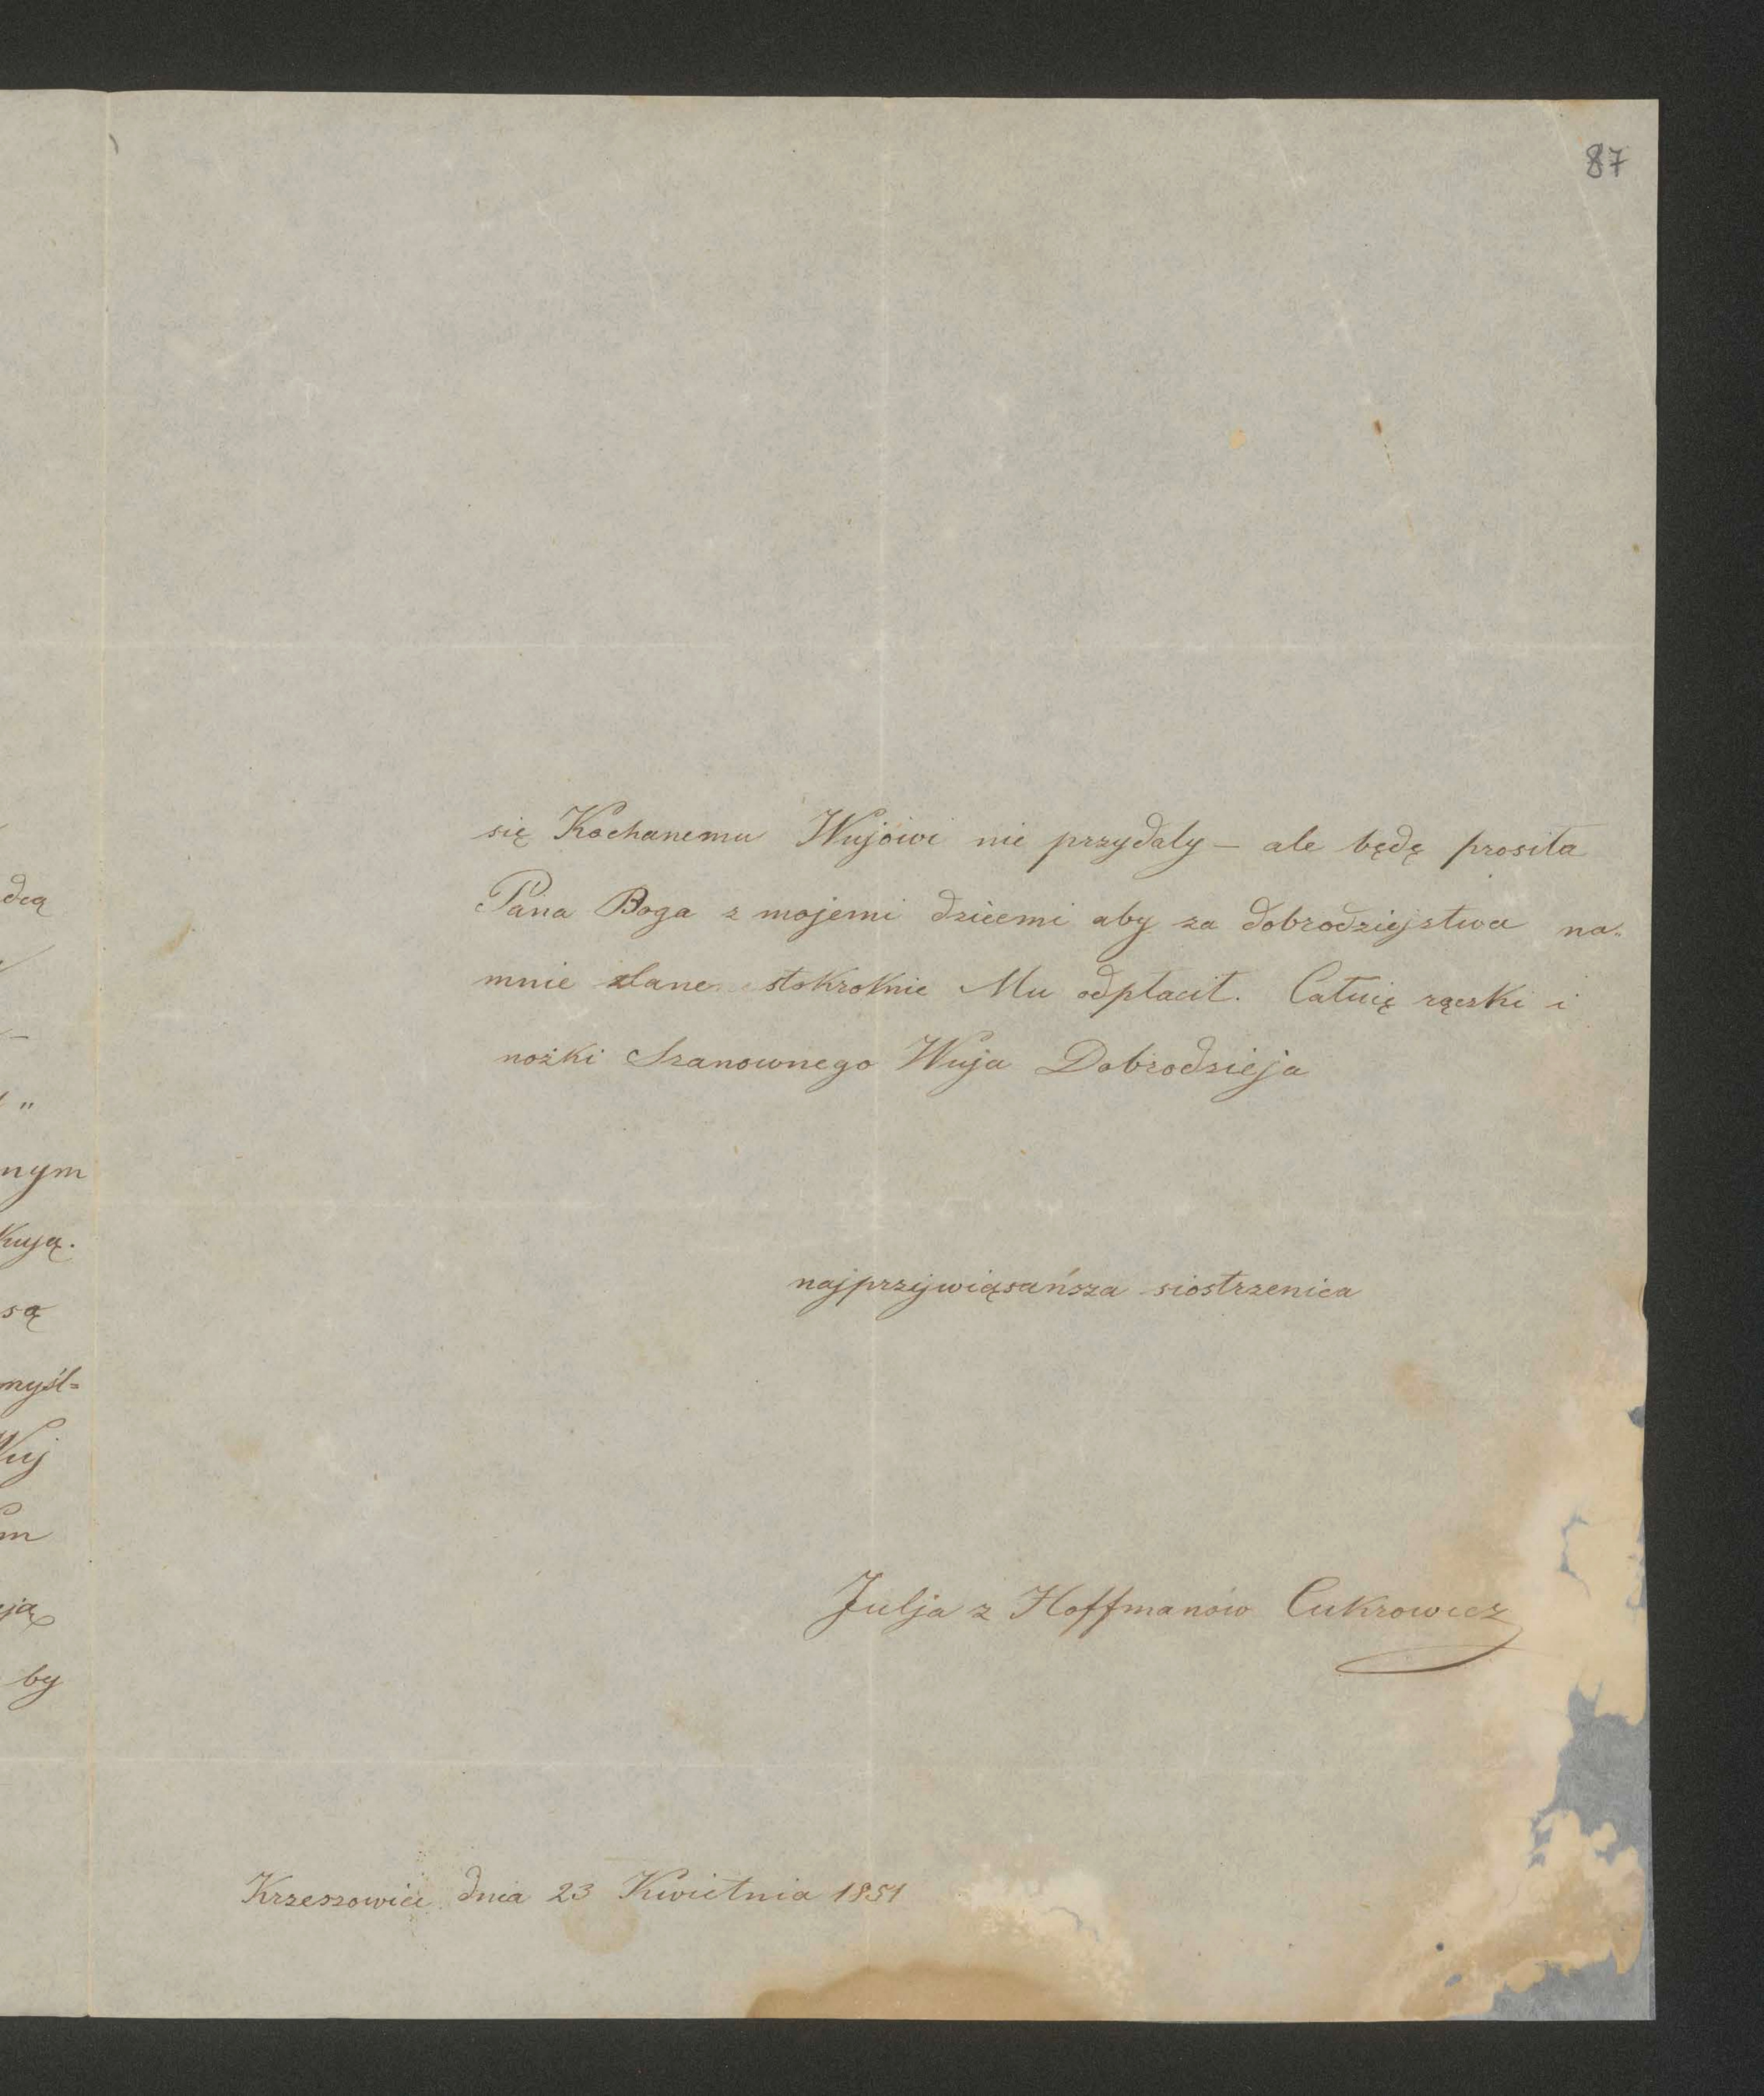 87
dcą
"
nym
kują.
są
myśl=
Wuj
m
ją
by
się Kochanemu Wujowi nie przydały – ale będę prosiła
Pana Boga z mojemi dziećmi aby za dobrodziejstwa na„
mnie zlane stokrotnie Mu odpłacił. Całuię rączki i
nożki Szanownego Wuja Dobrodzieja
najprzywiązańsza siostrzenica
Julja z Hoffmanów Cukrowicz
Krzeszowice dnia 23 Kwietnia 1851